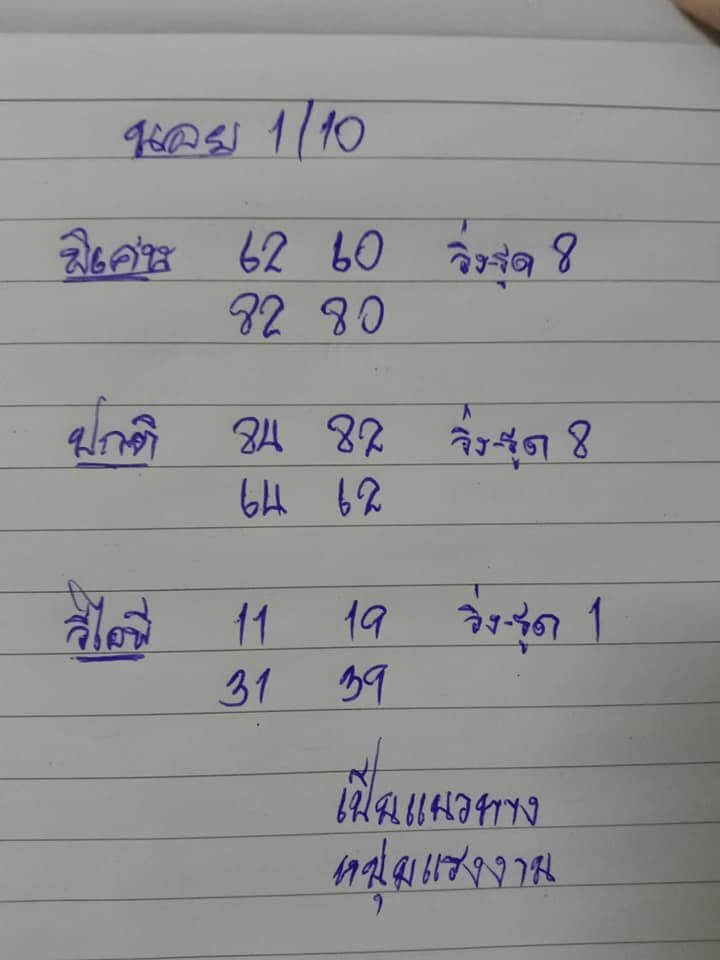 นอย 1/10
พิเศษ 62 60 วิ่ง-รูด 8
82 80
ปกติ 84 82 วิ่ง-รูด 8
64 62
วีไอพี 11 19 วิ่ง-รูด 1
31 39
เป็นแนวทาง
หนุ่มแรงงาน